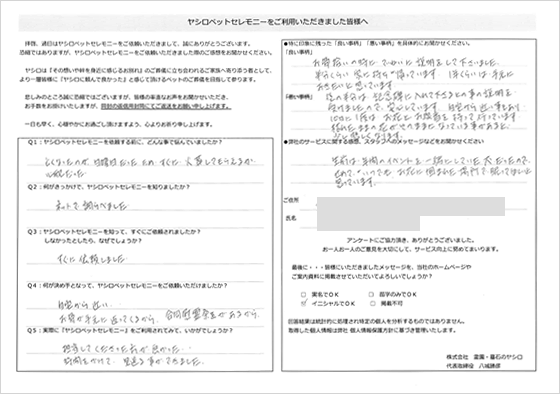 ヤシロペットセレモニーをご利用いただきました皆様へ
拝啓、過日はヤシロペットセレモニーをご依頼いただきまして、誠にありがとうございます。
恐縮ではありますが、ヤシロペットセレモニーをご依頼いただきました際のご感想をお聞かせください。
ヤシロは「その想いや絆を身近に感じるお別れ」のご葬儀に立ち会われるご家族へ寄り添う者として、
より一層皆様に「ヤシロに頼んで良かった」と感じて頂けるペットのご葬儀を目指し参ります。
悲しみのところ誠に恐縮ではございますが、皆様の率直なお声をお聞かせいただき、
お手数をお掛けいたしますが、同封の返信用封筒にてご返送をお願い申し上げます。
一日も早く、心穏やかにお過ごし頂けますよう、心よりお祈り申し上げます。
Q1：ヤシロペットセレモニーを依頼する前に、どんな事で悩んでいましたか？
亡くなったのが、日曜日だった為、すぐに火葬してもらえるか
心配だった
Q2：何がきっかけで、ヤシロペットセレモニーを知りましたか？
ネットで調べました
Q3：ヤシロペットセレモニーを知って、すぐにご依頼されましたか？
しなかったとしたら、なぜでしょうか？
すぐに依頼しました
Q4：何が決め手となって、ヤシロペットセレモニーをご依頼いただけましたか？
自宅から近い
お骨が手元に返ってくるから、合同慰霊祭があるから。
Q5：実際に「ヤシロペットセレモニー」をご利用されてみて、いかがでしょうか？
担当してくださった方が良かった…
時間をかけて、見送る事ができました。
●特に印象に残った「良い事柄」「悪い事柄」を具体的にお聞かせください。
「良い事柄」
お骨拾いの時に、ていねいに説明をして下さいました。
「悪い事柄」
●弊社のサービスに関する感想、スタッフへのメッセージなどをお聞かせください
生前は、年間のイベントを一緒にしていた犬だったので、
ご住所
氏名
アンケートにご協力頂き、ありがとうございました。
お一人お一人のご意見を大切にして、サービス向上に努めてまいります。
最後に・・・皆様にいただきましたメッセージを、当社のホームページや
ご案内資料に掲載させていただいてよろしいでしょうか？
□ 実名でOK □ 苗字のみでOK
☑ イニシャルでOK □ 掲載不可
回答結果は統計的に処理され特定の個人を分析するものではありません。
取得した個人情報は弊社 個人情報保護方針に基づき管理いたします。
株式会社 霊園・墓石のヤシロ
代表取締役 八城勝彦